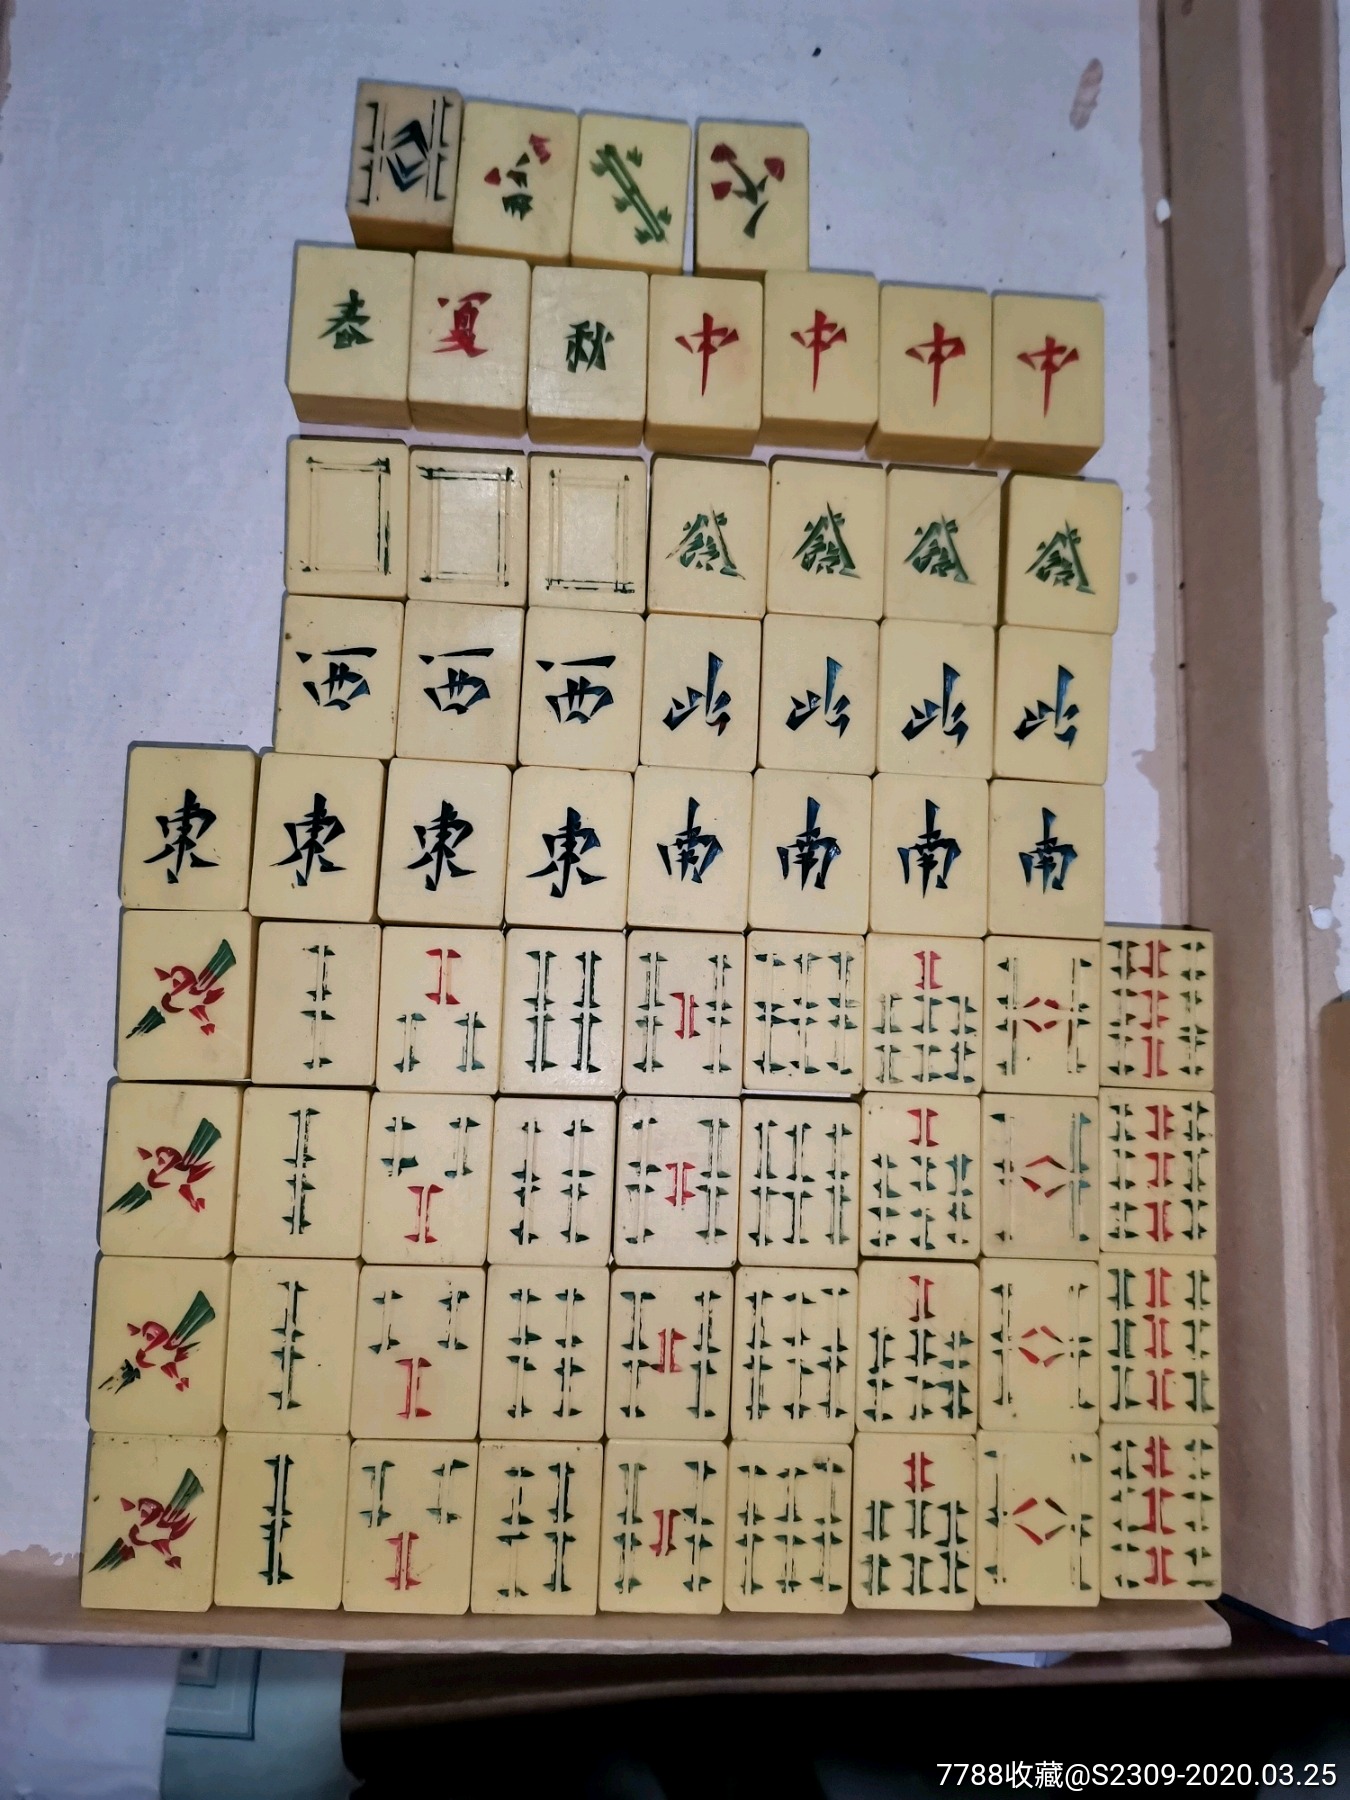 春 夏 秋 中 中 中 中
發 發 發 發
西 西 西 北 北 北 北
東 東 東 東 南 南 南 南
7788收藏@S2309-2020.03.25